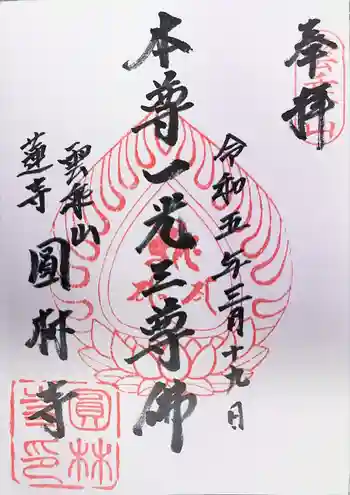 奉拝
令和五年三月十九日
本尊一光三尊佛
雲乗山
蓮寺
圓林寺
圓林寺印